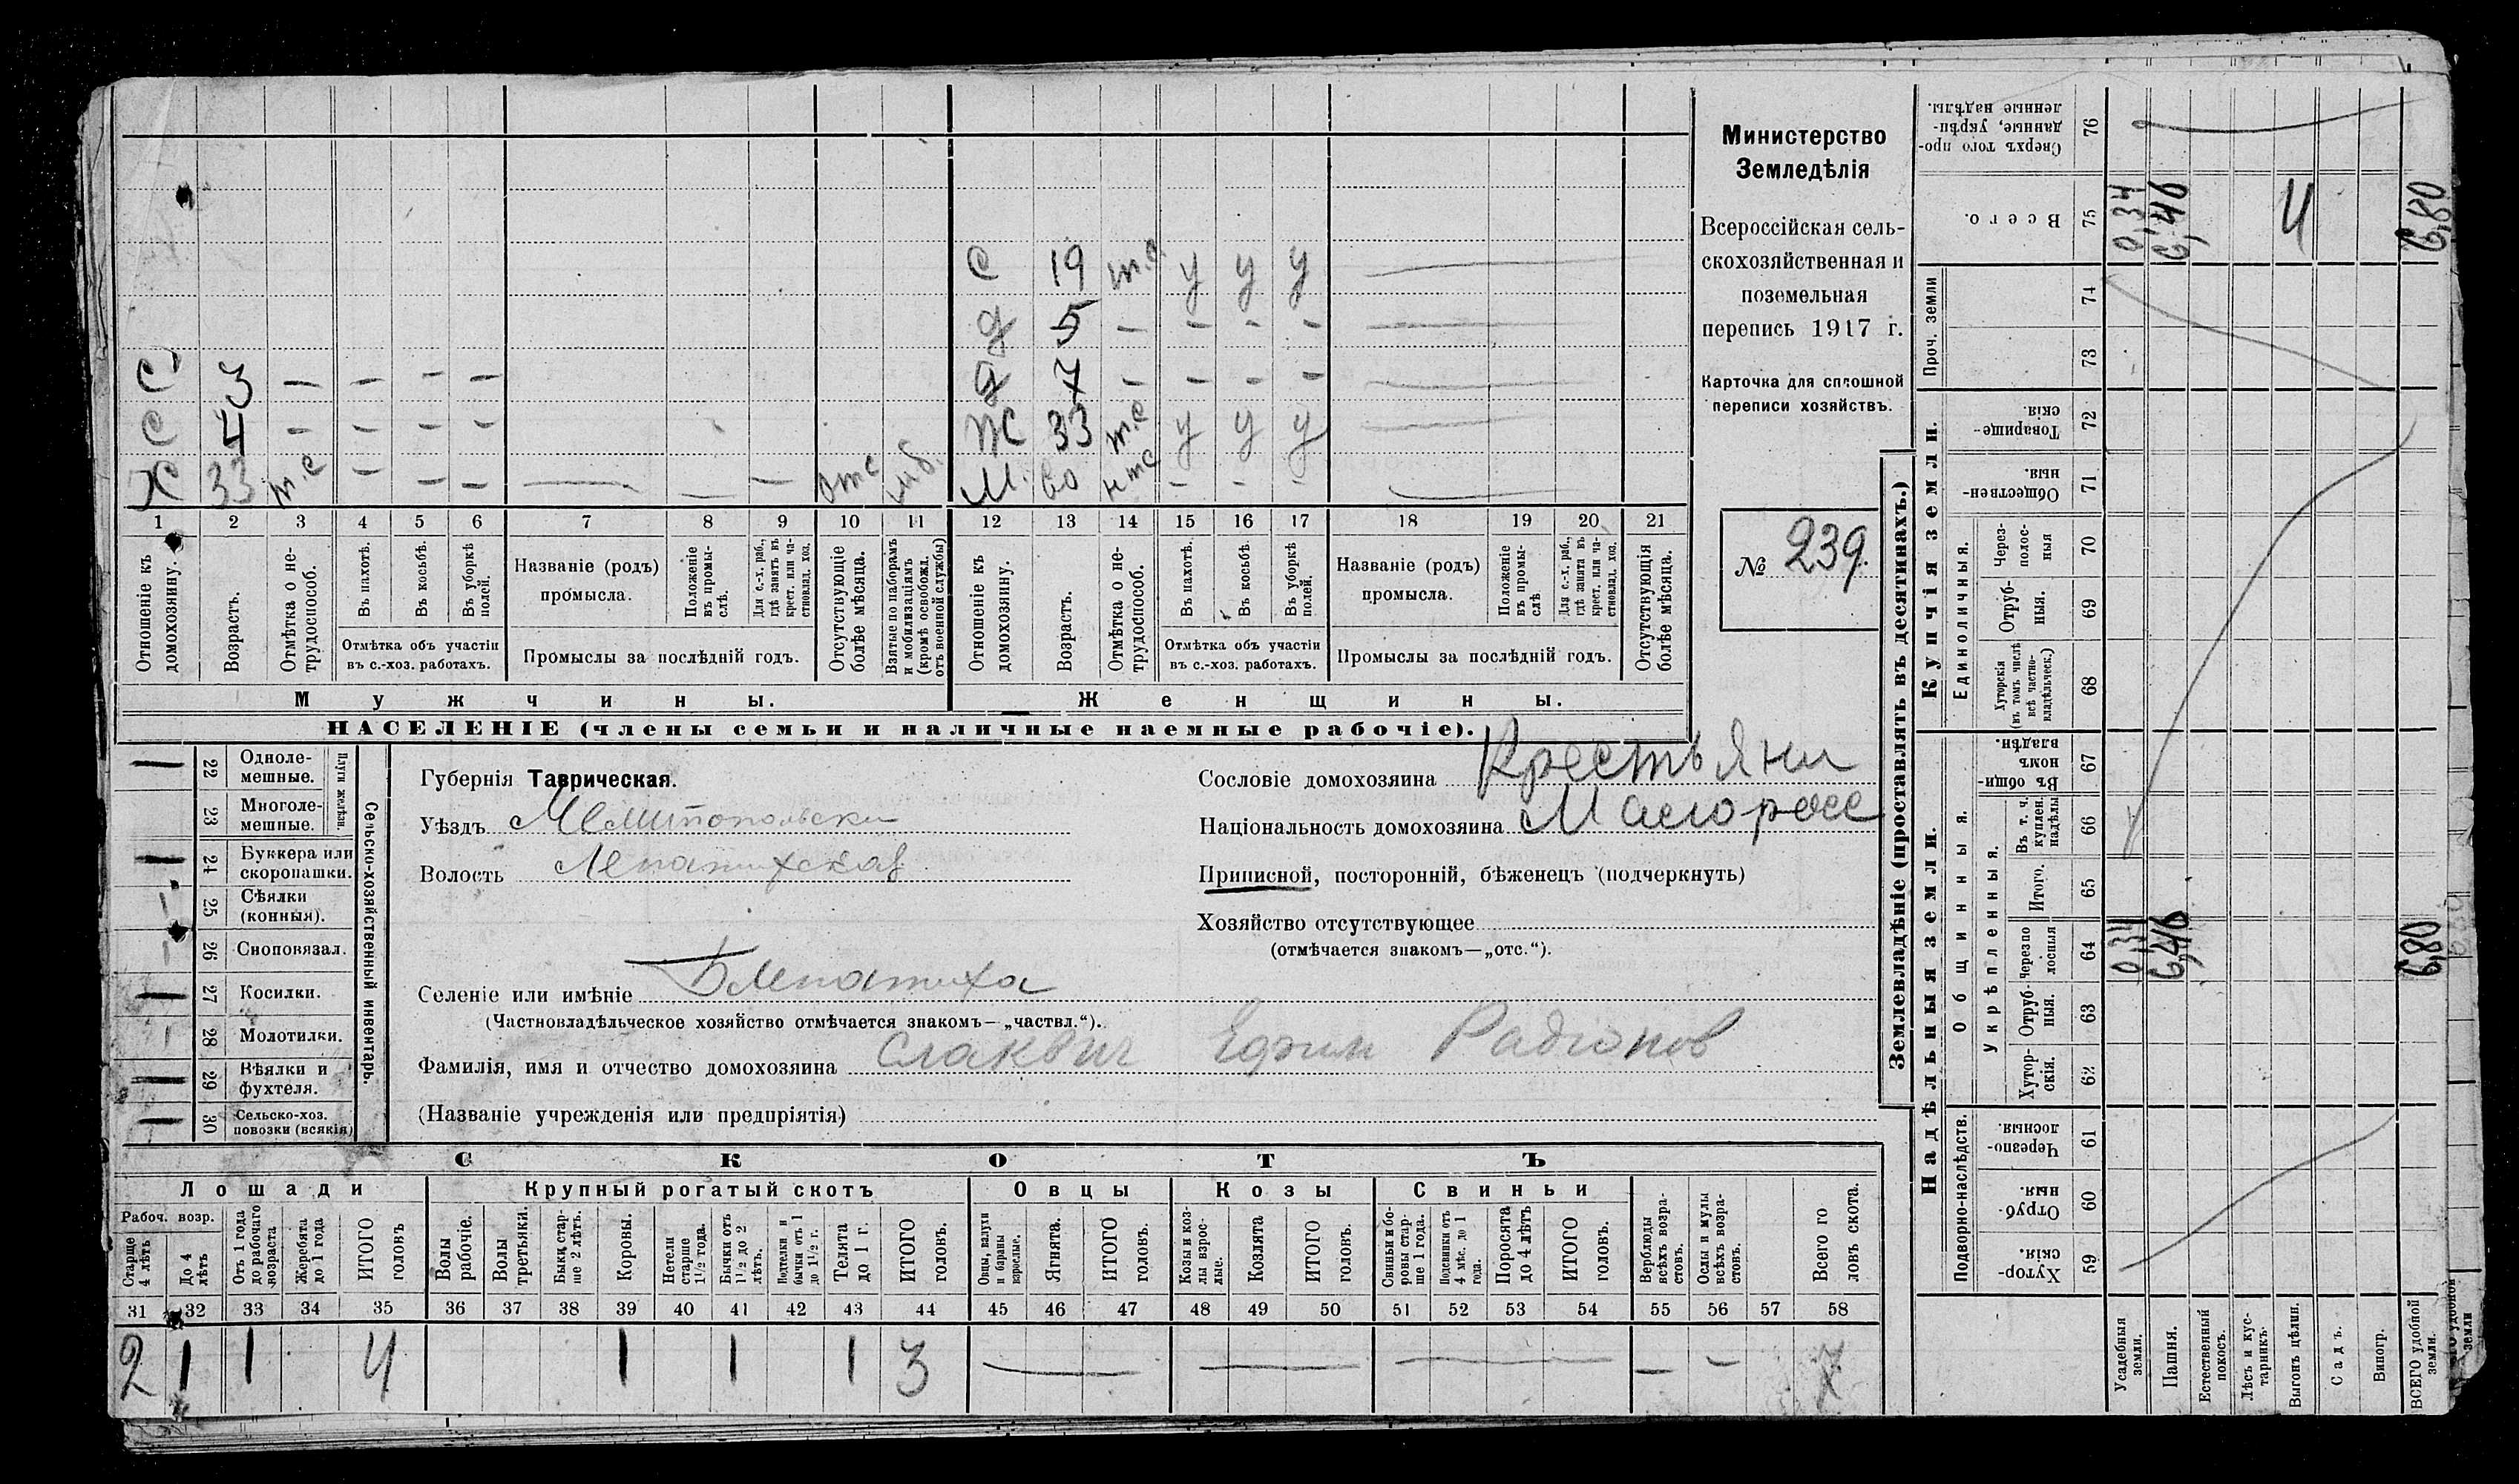 Министерство
Земледѣлія
Всероссійская сель-
скохозяйственная и
поземельная
перепись 1917 г.
Карточка для сплошной
переписи хозяйствъ.
№ 239.
с 19 т.с у у у
д 5 — — — —
с 3 — — — — д 7 — — — —
с 4 — — — — Ж 33 т.с у у у
Х 33 т.с — — — отс мб. М. 60 нтс — — —
1 2 3 4 5 6 7 8 9 10 11 12 13 14 15 16 17 18 19 20 21
Отношеніе къ домохозяину.
Возрастъ.
Отмѣтка о не-трудоспособ.
Въ пахотѣ.
Въ косьбѣ.
Въ уборкѣ полей.
Отмѣтка объ участіи
въ с.-хоз. работахъ.
Названіе (родъ)
промысла.
Положеніе въ промы-слѣ.
Для с.-х. раб., гдѣ занятъ въ крест. или ча-стновлад. хоз.
Промыслы за послѣдній годъ.
Отсутствующіе болѣе мѣсяца.
Взятые по наборамъ и мобилизаціямъ (кромѣ освобожд. отъ военной службы)
Отношеніе къ домохозяину.
Возрастъ.
Отмѣтка о не-трудоспособ.
Въ пахотѣ.
Въ косьбѣ.
Въ уборкѣ полей.
Отмѣтка объ участіи
въ с.-хоз. работахъ.
Названіе (родъ)
промысла.
Положеніе въ промы-слѣ
Для с.-х. раб., гдѣ занята въ крест. или ча-стновлад. хоз.
Промыслы за послѣдній годъ.
Отсутствующія болѣе мѣсяца.
Мужчины. Женщины.
НАСЕЛЕНІЕ (члены семьи и наличные наемные рабочіе).
22 Одноле-мешные.
23 Многоле-мешные.
Плуги желѣзн.
24 Буккера или скоропашки.
25 Сѣялки (конныя).
26 Сноповязал.
27 Косилки.
28 Молотилки.
29 Вѣялки и фухтеля.
30 Сельско-хоз. повозки (всякія)
Сельско-хозяйственный инвентарь.
Губернія Таврическая.
Уѣздъ Мелитопольски
Волость Лепатихская
Селеніе или имѣніе Б Лепатиха
(Частновладѣльческое хозяйство отмѣчается знакомъ—„частвл.“).
Фамилія, имя и отчество домохозяина Слаквич Ефим Радіонов
(Названіе учрежденія или предпріятія)
Сословіе домохозяина Крестьяни
Національность домохозяина Малоросс
Приписной, посторонній, бѣженецъ (подчеркнуть)
Хозяйство отсутствующее
(отмѣчается знакомъ—„отс.“).
СКОТЪ
Лошади Крупный рогатый скотъ Овцы Козы Свиньи
Рабоч. возр.
Старше 4 лѣтъ
До 4 лѣтъ
Отъ 1 года до рабочаго возраста
Жеребята до 1 года
ИТОГО головъ
Волы рабочіе.
Волы третьяки.
Быки стар-ше 2 лѣтъ.
Коровы.
Нетели старше 1½ года.
Бычки отъ 1½ до 2 лѣтъ.
Подтелки и бычки отъ 1 до 1½ г.
Телята до 1 г.
ИТОГО головъ.
Овцы, валухи и бараны взрослые.
Ягнята.
ИТОГО головъ.
Козы и коз-лы взрос-лые.
Козлята
ИТОГО головъ.
Свиньи и бо-ровы стар-ше 1 года.
Подсвинки отъ 4 мѣс. до 1 года.
Поросята до 4 лѣтъ
ИТОГО головъ.
Верблюды всѣхъ возра-стовъ.
Ослы и мулы всѣхъ возра-стовъ.
Всего го ловъ скота.
31 32 33 34 35 36 37 38 39 40 41 42 43 44 45 46 47 48 49 50 51 52 53 54 55 56 57 58
2 1 1 4 1 1 1 3 — — — — — 7
Землевладѣніе (проставлять въ десятинахъ.)
Надѣльныя земли. Купчія земли. Проч. земли
Подворно-наслѣдств.
Общинныя.
Укрѣпленныя.
Единоличныя.
59 Хутор-скія.
60 Отруб-ныя.
61 Черезпо-лосныя.
62 Хутор-скія.
63 Отруб-ныя.
64 Черезпо лосныя
65 Итого.
66 Въ т. ч. куплен. надѣлы
67 Въ общи-номъ владѣн.
68 Хуторскія (въ томъ числѣ всѣ частно-владѣльческ.)
69 Отруб-ныя.
70 Через-полос-ныя
71 Обществен-ныя.
72 Товарище-скія.
73
74
75 Всего.
76 Сверхъ того про-данные, укрѣп-ленные надѣлы.
Усадебныя земли. 0,34 0,34
Пашня. 6,46 6,46
Естественный покосъ.
Лѣсъ и кус-тарникъ.
Выгонъ цѣлин. Ч
Садъ.
Виногр.
ВСЕГО удобной земли. 6,80 6,80
удобной земли